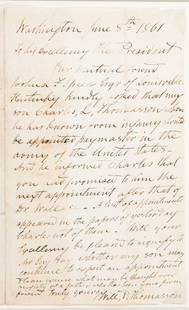 Washington June 8th 1861
To his excellency the President
Our mutual friend
Joshua F. Speed Esqr of Louisville
Kentucky kindly asked that my
son Charles L. Thomasson whom
he has known from infancy would
be appointed paymaster in the
army of the United States.
And he informed Charles that
you had promised to him the
next appointment after that of
Dr Wall A list of appointments
appeared in the papers of yesterday
Charles not of them. Will your
Excellency be pleased to signify to
me whether my son may
continue to expect an appointment
Please excuse what may be thought
of a father
truly yours
Will. P. Thomasson